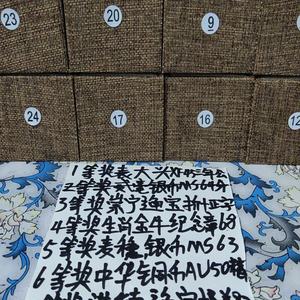 23
20
9
24
17
16
12
1等奖袁大头
2等奖 银币MS64分
3等奖崇宁通宝折十正字
4等奖生肖金牛纪念章68
5等奖麦穗银币MS63
6等奖中华铜币AU50